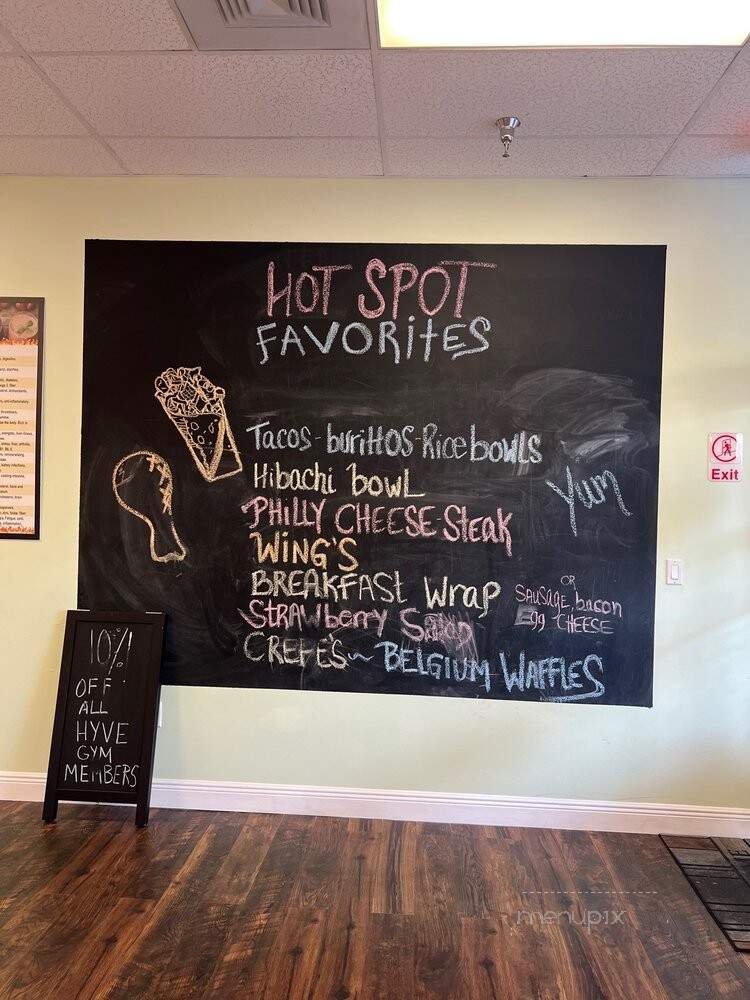 HOT SPOT
FAVORITES
Tacos-burittos-Rice bowls
Hibachi bowL
PHILLY CHEESE-Steak
WING'S
BREAKFAST Wrap
OR
SAUSAGE, bacon
Egg CHEESE
STRAWberry Salad
CREPE'S ~ BELGIUM WAFFLES
Yum
10%
OFF
ALL
HYVE
GYM
MEMBERS
Exit
menupix